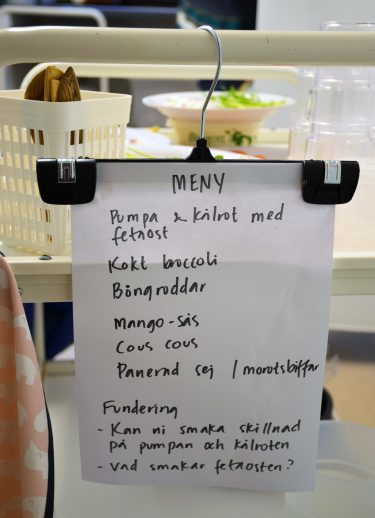 MENY
Pumpa & kålrot med
fetaost
Kokt broccoli
Böngroddar
Mango-sås
Cous cous
Panerad sej / morotsbiffar
Fundering
- Kan ni smaka skillnad
på pumpan och kålroten
- Vad smakar fetaosten?